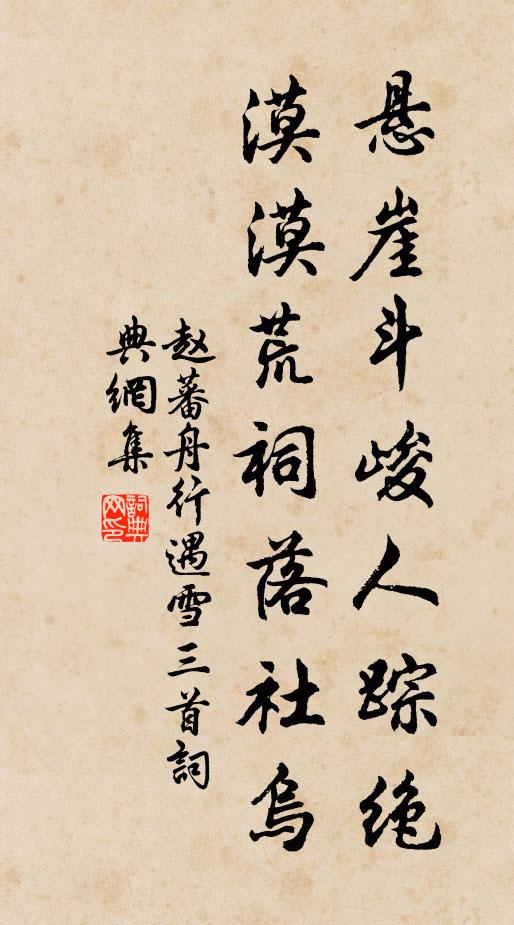 悬崖斗峻人踪绝
漠漠荒祠落社乌
赵蕃舟行遇雪三首詞
典網集
詞典
网印